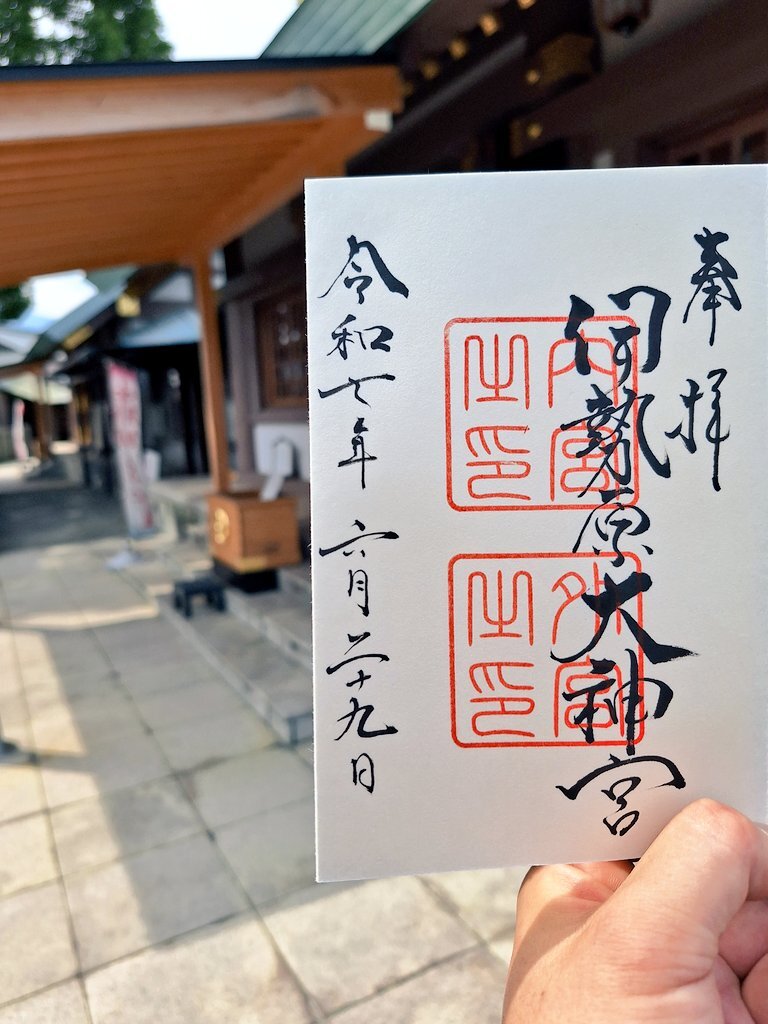 奉拝
伊勢原大神宮
内宮
之印
外宮
之印
令和七年六月二十九日